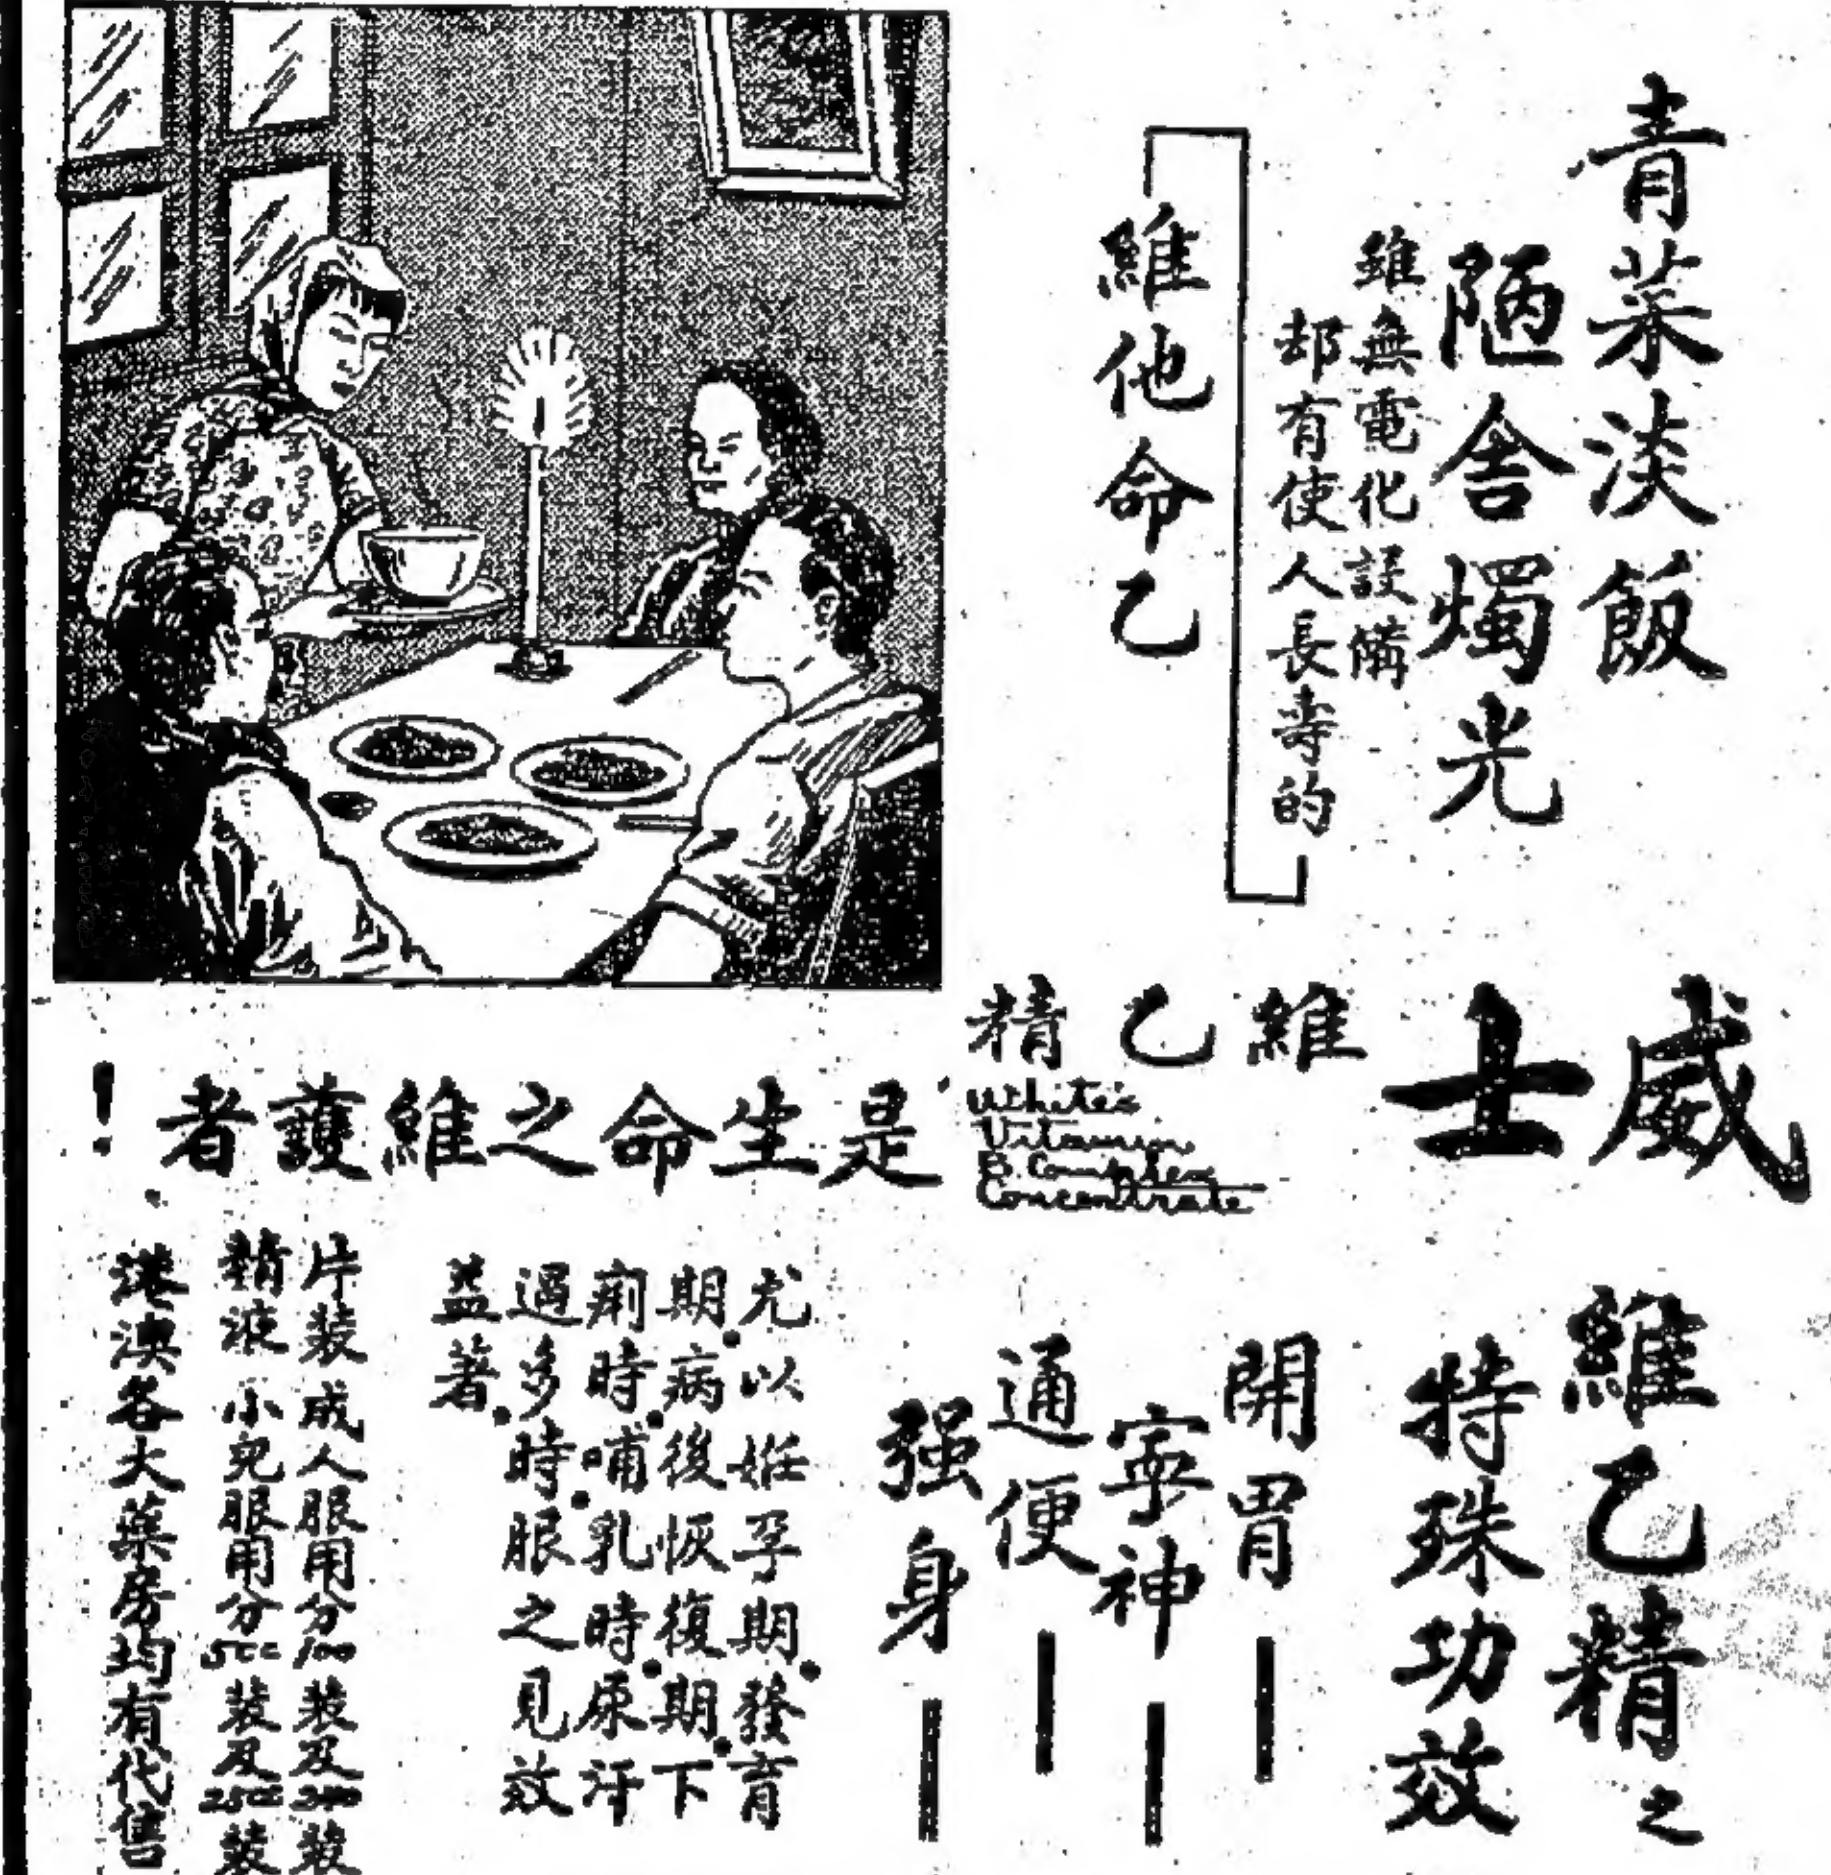 青菜淡飯
陋舍燭光
雖無電化設備
却有使人長壽的
維他命乙
威士
維乙精
White's
Vitamin
B. Complex
Concentrate
是生命之維護者!
維乙精之
特殊功效
開胃
寧神
通便
强身
尤以姙孕期.發育
期.病後恢復期.下
痢時.哺乳時.尿汗
過多時.服之見效
益著.
片裝 成人服用分100裝及250裝
精液 小兒服用分5cc裝及25cc裝
港澳各大藥房均有代售